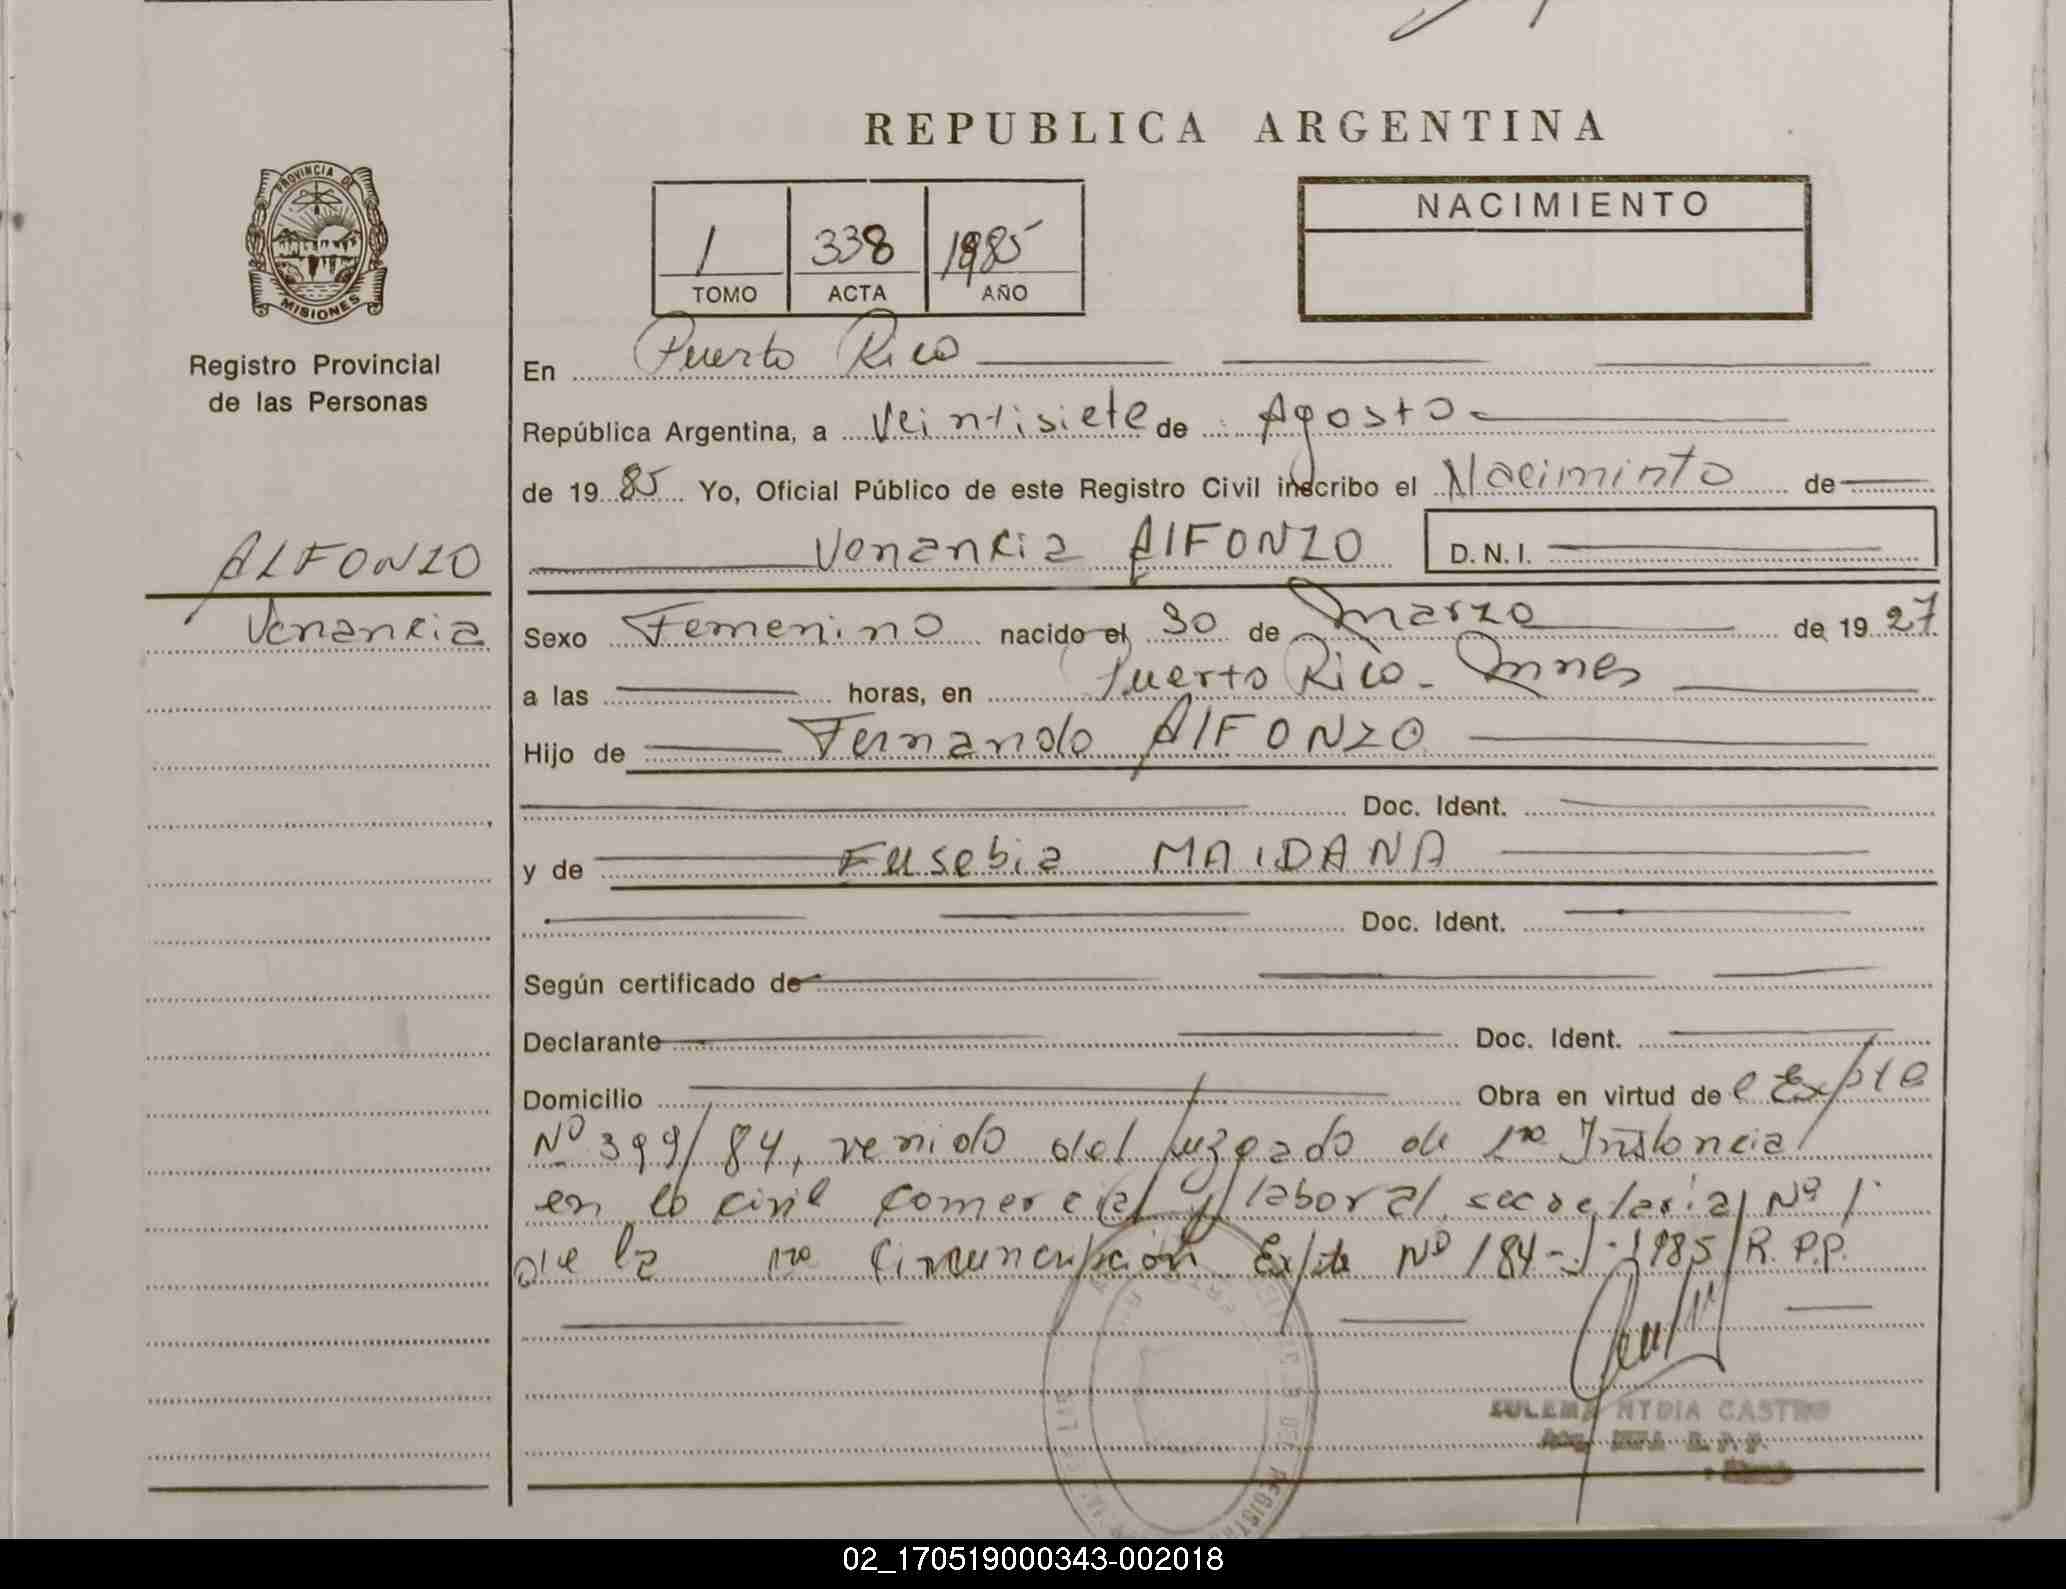 REPUBLICA ARGENTINA
PROVINCIA DE
MISIONES
Registro Provincial
de las Personas
ALFONZO
Venancia
1 338 1985
TOMO ACTA AÑO
NACIMIENTO
En Puerto Rico
República Argentina, a Veintisiete de Agosto
de 19 85 Yo, Oficial Público de este Registro Civil inscribo el Naciminto de
Venancia AlFONZO D.N.I.
Sexo Femenino nacido el 30 de marzo de 19 27
a las horas, en Puerto Rico - Mnes
Hijo de Fernando AlFONZO
Doc. Ident.
y de Eusebia MAIDANA
Doc. Ident.
Según certificado de
Declarante Doc. Ident.
Domicilio Obra en virtud de l Expte
Nº 399/84, venido del juzgado de 1ra Instancia
en lo civil comercial y laboral secretaria Nº 1
de la 1ra Circuncripción Expte Nº 184-J-1985 R.P.P.
ZULEMA NYDIA CASTRO
R.P.P.
02_170519000343-002018